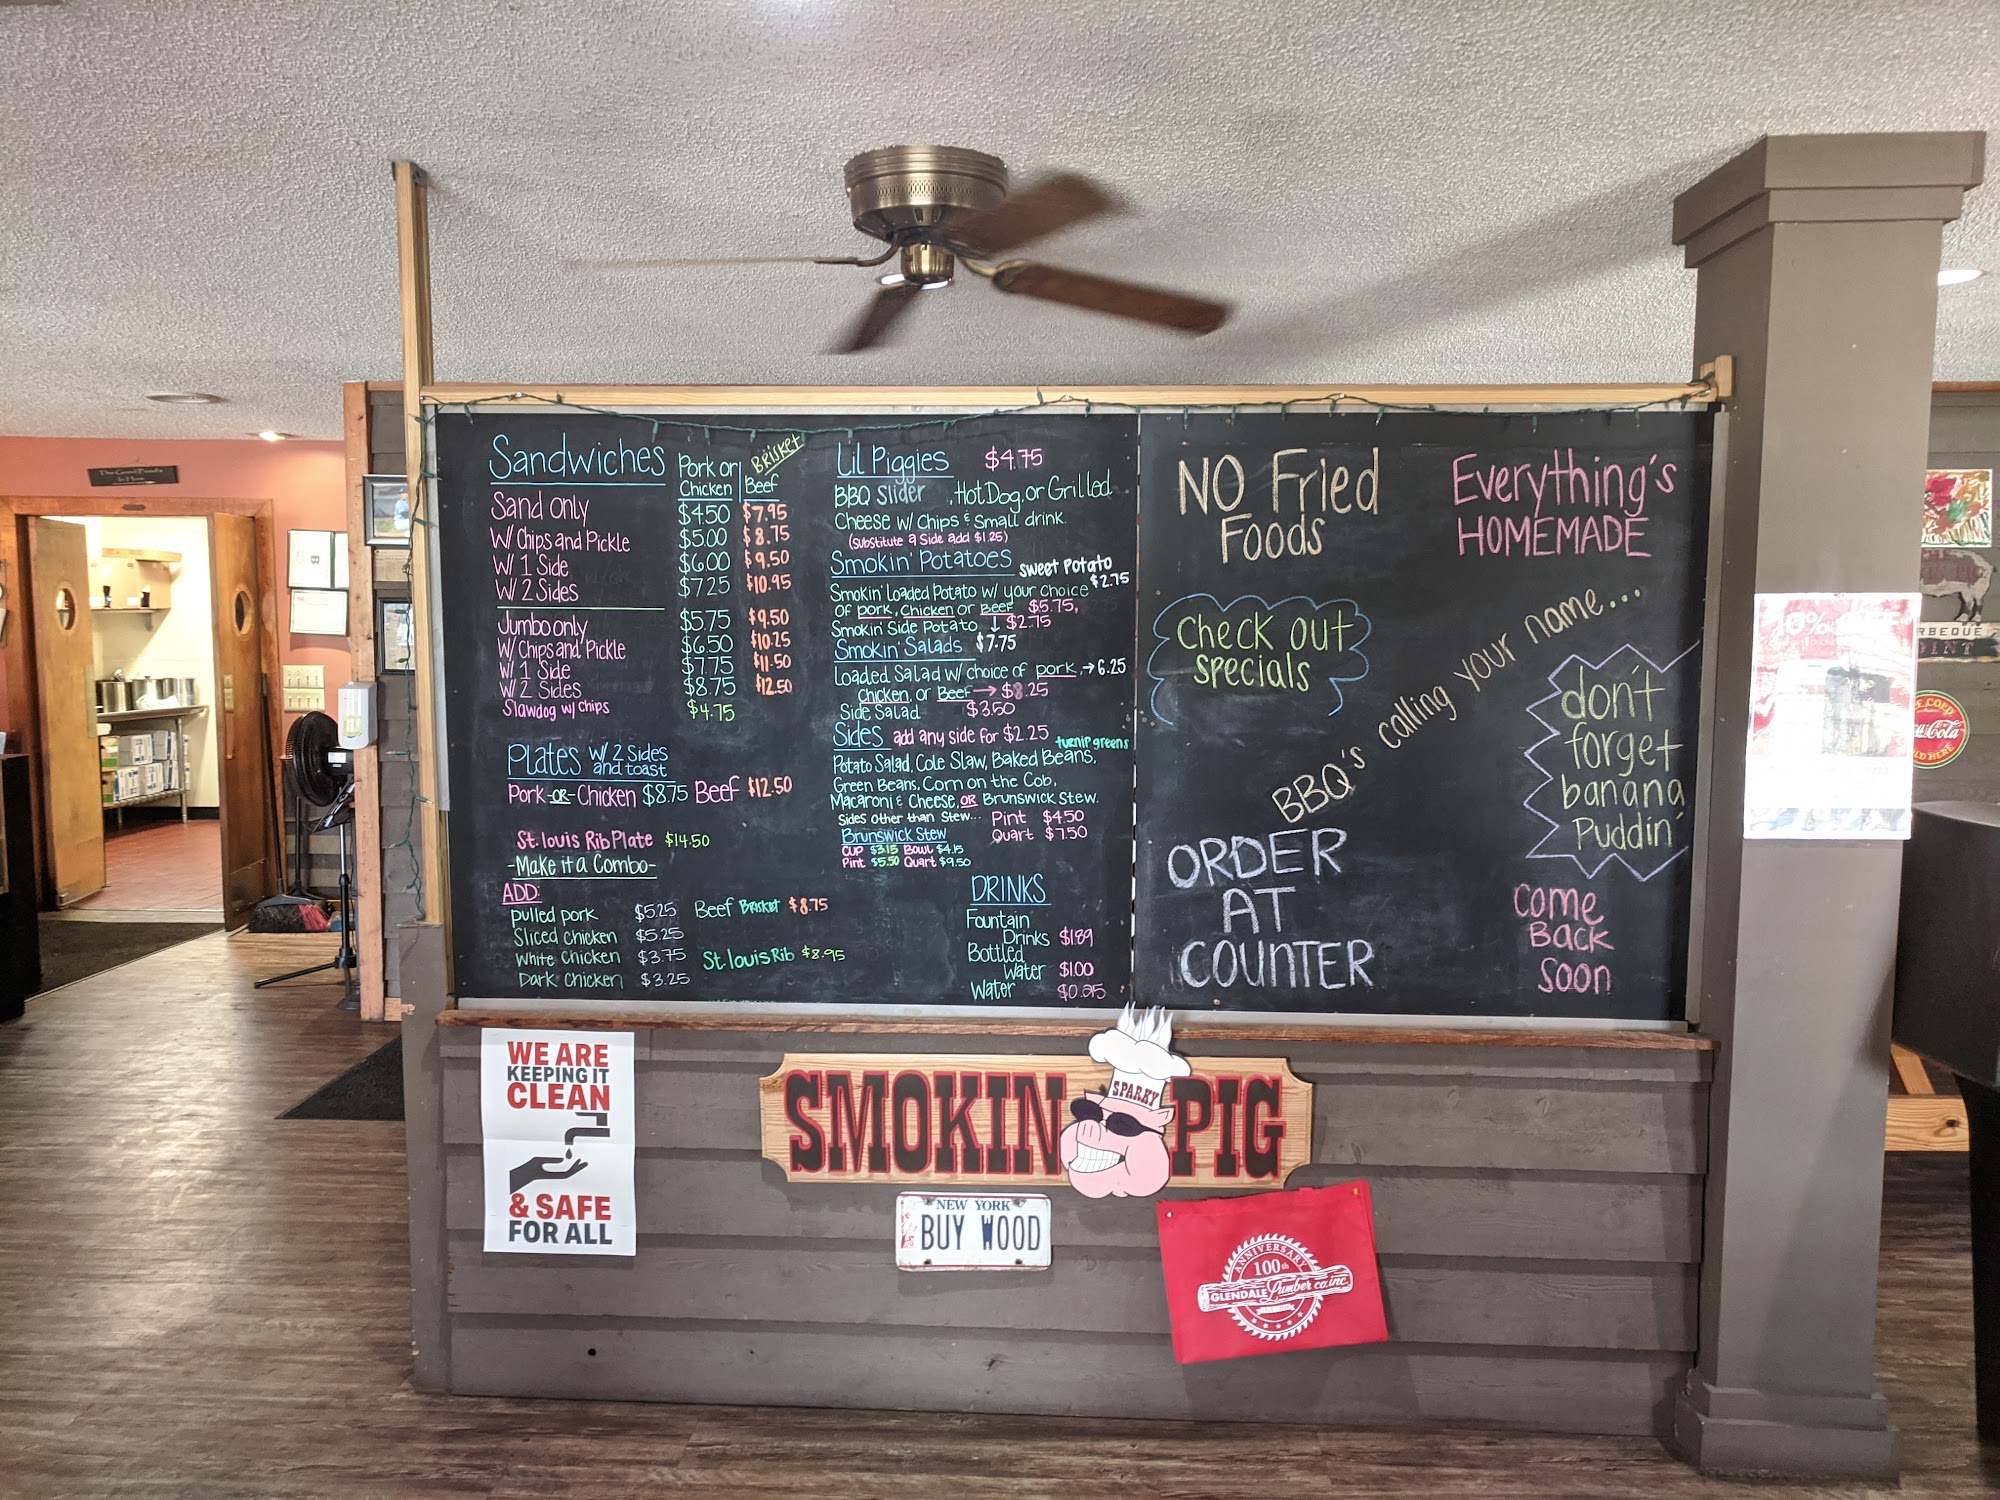 Sandwiches
Pork or Chicken
BRISKET Beef
Sand only $4.50 $7.95
W/ Chips and Pickle $5.00 $8.75
W/ 1 Side $6.00 $9.50
W/ 2 Sides $7.25 $10.95
Jumbo only $5.75 $9.50
W/ Chips and Pickle $6.50 $10.25
W/ 1 Side $7.75 $11.50
W/ 2 Sides $8.75 $12.50
Slawdog w/ Chips $4.75
Plates w/ 2 Sides
and toast
Pork -OR- Chicken $8.75 Beef $12.50
St. Louis Rib Plate $14.50
-Make it a Combo-
ADD:
pulled pork $5.25 Beef Brisket $8.75
Sliced Chicken $5.25
White Chicken $3.75 St. louis Rib $8.95
Dark Chicken $3.25
Lil Piggies $4.75
BBQ Slider, Hot Dog, or Grilled
Cheese w/ Chips & Small drink.
(substitute a Side add $1.25)
Smokin' Potatoes sweet Potato
$2.75
Smokin' Loaded Potato w/ your choice
of pork, Chicken or Beef $5.75,
Smokin' Side Potato ↓ $2.75
Smokin' Salads $7.75
Loaded Salad w/ choice of pork, → 6.25
Chicken, or Beef → $8.25
Side Salad $3.50
Sides add any side for $2.25
turnip greens
Potato Salad, Cole Slaw, Baked Beans,
Green Beans, Corn on the Cob,
Macaroni & Cheese, OR Brunswick Stew.
Sides other than Stew... Pint $4.50
Quart $7.50
Brunswick Stew
Cup $3.15 Bowl $4.15
Pint $5.50 Quart $9.50
DRINKS
Fountain
Drinks $1.89
Bottled
Water $1.00
Water $0.25
NO Fried
Foods
Everything's
HOMEMADE
Check out
specials
BBQ's calling your name...
don't
forget
banana
Puddin'
ORDER
AT
COUNTER
Come
Back
Soon
WE ARE
KEEPING IT
CLEAN
& SAFE
FOR ALL
SMOKIN PIG
SPARKY
NEW YORK
BUY WOOD
ANNIVERSARY
100th
GLENDALE Lumber co. inc.
10% OFF
Coca-Cola